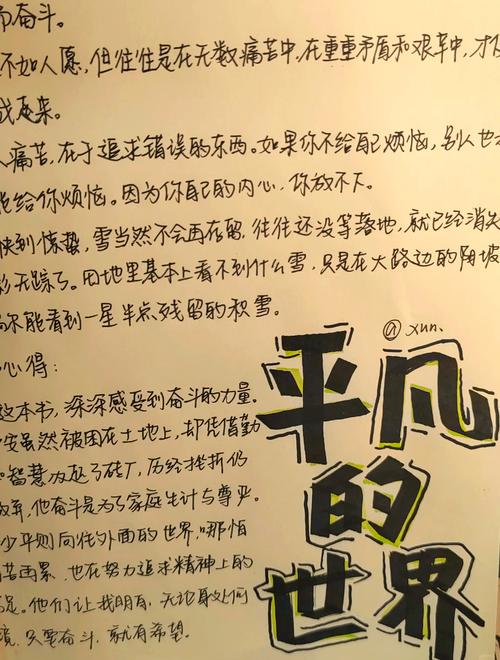 而奋斗。
不如人愿,但往往是在无数痛苦中,在重重矛盾和艰辛中,才
成起来。
人痛苦,在于追求错误的东西。如果你不给自己烦恼,别人也
能给你烦恼。因为你自己的内心,你放不下。
快到惊蛰,雪当然不会再存留,往往还没等落地,就已经消失
影无踪了。田地里基本上看不到什么雪,只是在大路边的阳坡
尔能看到一星半点残留的积雪。
@ xun.
心得:
这本书,深深感受到奋斗的力量。
安虽然被困在土地上,却凭借勤
智慧办起了砖厂,历经挫折仍
放弃,他奋斗是为了家庭生计与尊严。
少平则向往外面的世界,哪怕
苦再累,也在努力追求精神上的
足。他们让我明白,无论身处何
境,只要奋斗,就有希望。
平凡
的
世界